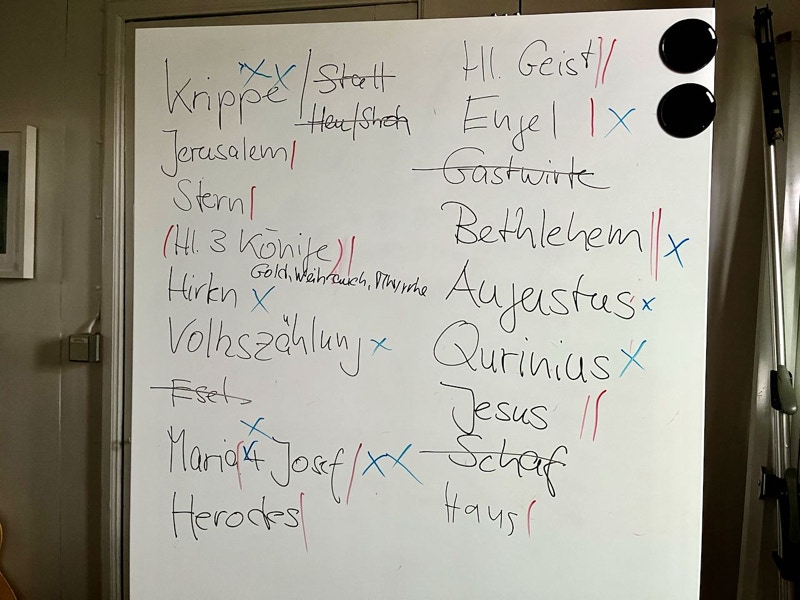 Krippe / Stall
Heu/Stroh
Jerusalem
Stern
(Hl. 3 Könige)
Gold, Weihrauch, Myrrhe
Hirtn
Volkszählung
Esel
Maria + Josef
Herodes
Hl. Geist
Engel
Gastwirte
Bethlehem
Augustus
Qurinius
Jesus
Schaf
Haus